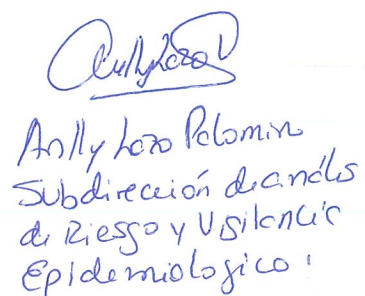 Anlly Lozo Palomin
Subdirección de análs
de Riesgo y Vigilancia
Epidemiologico.